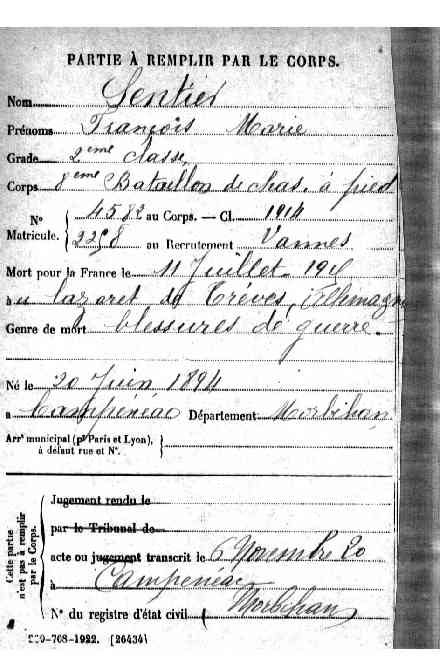 PARTIE À REMPLIR PAR LE CORPS.
Nom Sentier
Prénoms François Marie
Grade 2ème classe
Corps 8ème Bataillon de chas. à pied
N° Matricule. { 4582 au Corps. — Cl. 1914
2298 au Recrutement Vannes
Mort pour la France le 11 Juillet
à lazaret de Trèves, Allemagne
Genre de mort blessures de guerre
Né le 20 Juin 1894
à Campénéac Département Morbihan
Arrt municipal (pr Paris et Lyon), à défaut rue et N°. }
Cette partie n'est pas à remplir par le Corps.
Jugement rendu le
par le Tribunal de
acte ou jugement transcrit le 6 Novembre 20
à Campénéac
N° du registre d'état civil ( Morbihan
-708-1922. [26434]